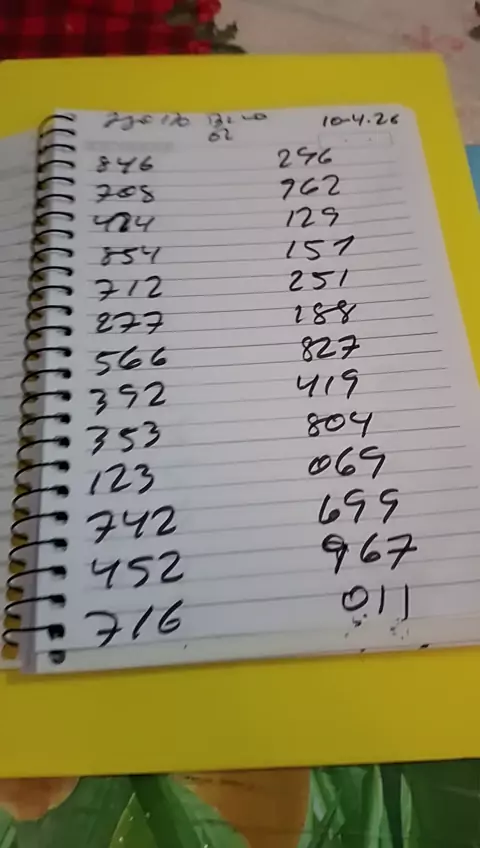 10-4.26
02
846 296
708 962
484 129
854 157
712 251
277 188
566 827
392 419
353 804
123 069
742 699
452 967
716 011